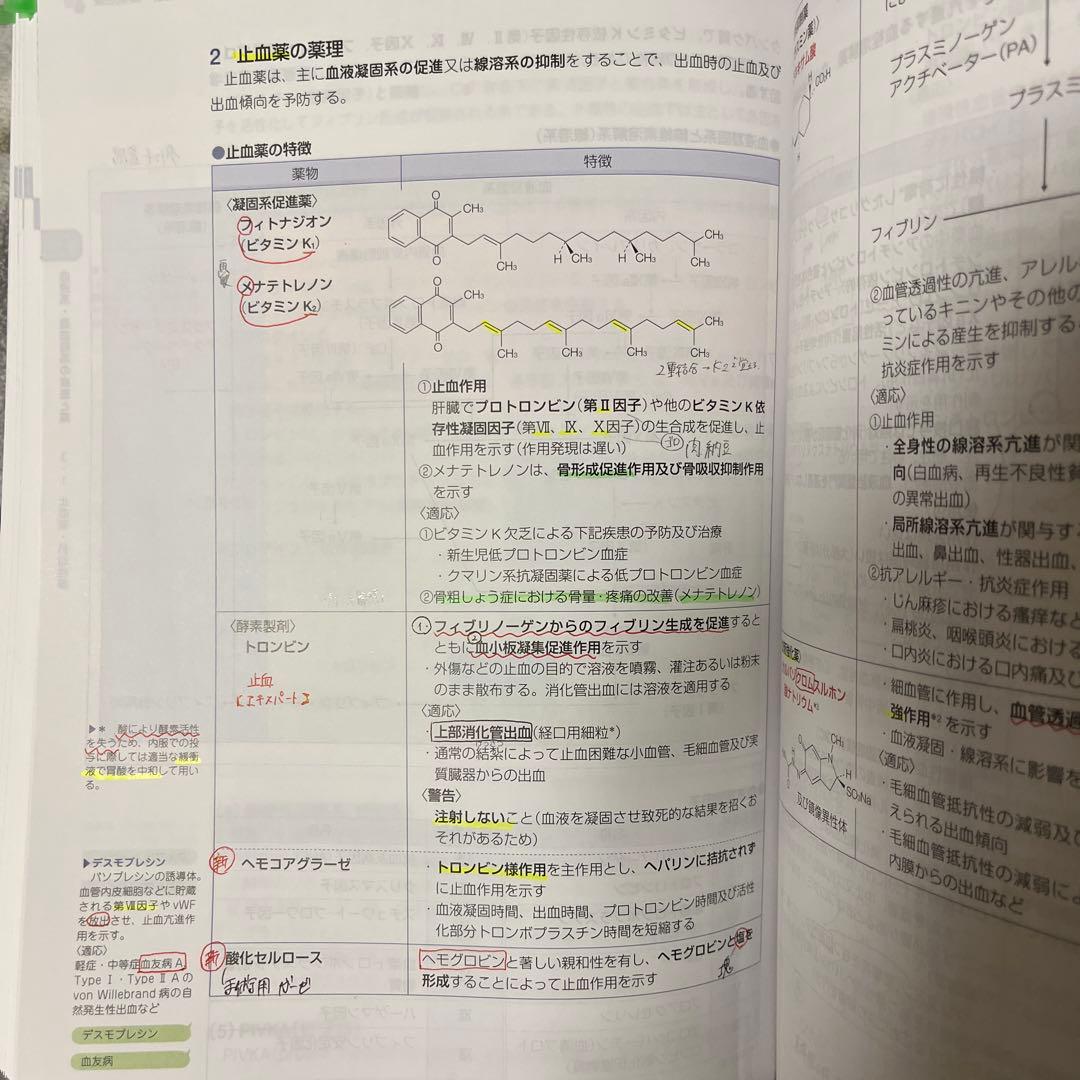 2 止血薬の薬理
止血薬は、主に血液凝固系の促進又は線溶系の抑制をすることで、出血時の止血及び
出血傾向を予防する。
●止血薬の特徴
薬物
特徴
〈凝固系促進薬〉
フィトナジオン
(ビタミンK₁)
O
CH₃
O
CH₃
H
CH₃
H
CH₃
CH₃
CH₃
メナテトレノン
(ビタミンK₂)
O
CH₃
O
CH₃
CH₃
CH₃
CH₃
CH₃
①止血作用
肝臓でプロトロンビン(第Ⅱ因子)や他のビタミンK依
存性凝固因子(第Ⅶ、Ⅸ、Ⅹ因子)の生合成を促進し、止
血作用を示す(作用発現は遅い)
肉納豆
②メナテトレノンは、骨形成促進作用及び骨吸収抑制作用
を示す
〈適応〉
①ビタミンK欠乏による下記疾患の予防及び治療
・新生児低プロトロンビン血症
・クマリン系抗凝固薬による低プロトロンビン血症
②骨粗しょう症における骨量・疼痛の改善(メナテトレノン)
〈酵素製剤〉
トロンビン
止血
【エキスパート】
①フィブリノーゲンからのフィブリン生成を促進すると
ともに血小板凝集促進作用を示す
・外傷などの止血の目的で溶液を噴霧、灌注あるいは粉末
のまま散布する。消化管出血には溶液を適用する
〈適応〉
・上部消化管出血(経口用細粒*)
・通常の結紮によって止血困難な小血管、毛細血管及び実
質臓器からの出血
〈警告〉
注射しないこと(血液を凝固させ致死的な結果を招くお
それがあるため)
新
ヘモコアグラーゼ
・トロンビン様作用を主作用とし、ヘパリンに拮抗されず
に止血作用を示す
・血液凝固時間、出血時間、プロトロンビン時間及び活性
化部分トロンボプラスチン時間を短縮する
新
酸化セルロース
手術用 ガーゼ
ヘモグロビンと著しい親和性を有し、ヘモグロビンと塩を
形成することによって止血作用を示す
塊
▶* 酸により酵素活性
を失うため、内服での投
与に際しては適当な緩衝
液で胃酸を中和して用い
る。
▶デスモプレシン
バソプレシンの誘導体。
血管内皮細胞などに貯蔵
される第Ⅷ因子やvWF
を放出させ、止血亢進作
用を示す。
〈適応〉
軽症・中等症血友病A、
Type Ⅰ・Type ⅡAの
von Willebrand 病の自
然発生性出血など
デスモプレシン
血友病
CO₂H
H
プラスミノーゲン
アクチベーター(PA)
プラスミ
フィブリン
②血管透過性の亢進、アレル
っているキニンやその他の
ミンによる産生を抑制する
抗炎症作用を示す
〈適応〉
①止血作用
・全身性の線溶系亢進が関
向(白血病、再生不良性貧
の異常出血)
・局所線溶系亢進が関与す
出血、鼻出血、性器出血、
②抗アレルギー・抗炎症作用
・じん麻疹における瘙痒など
・扁桃炎、咽喉頭炎における
・口内炎における口内痛及び
クロムスルホン
ナトリウム*³
CH₃
H
SO₃Na
及び鏡像異性体
・細血管に作用し、血管透過
強作用*²を示す
・血液凝固・線溶系に影響を
〈適応〉
・毛細血管抵抗性の減弱及び
えられる出血傾向
・毛細血管抵抗性の減弱によ
内膜からの出血など